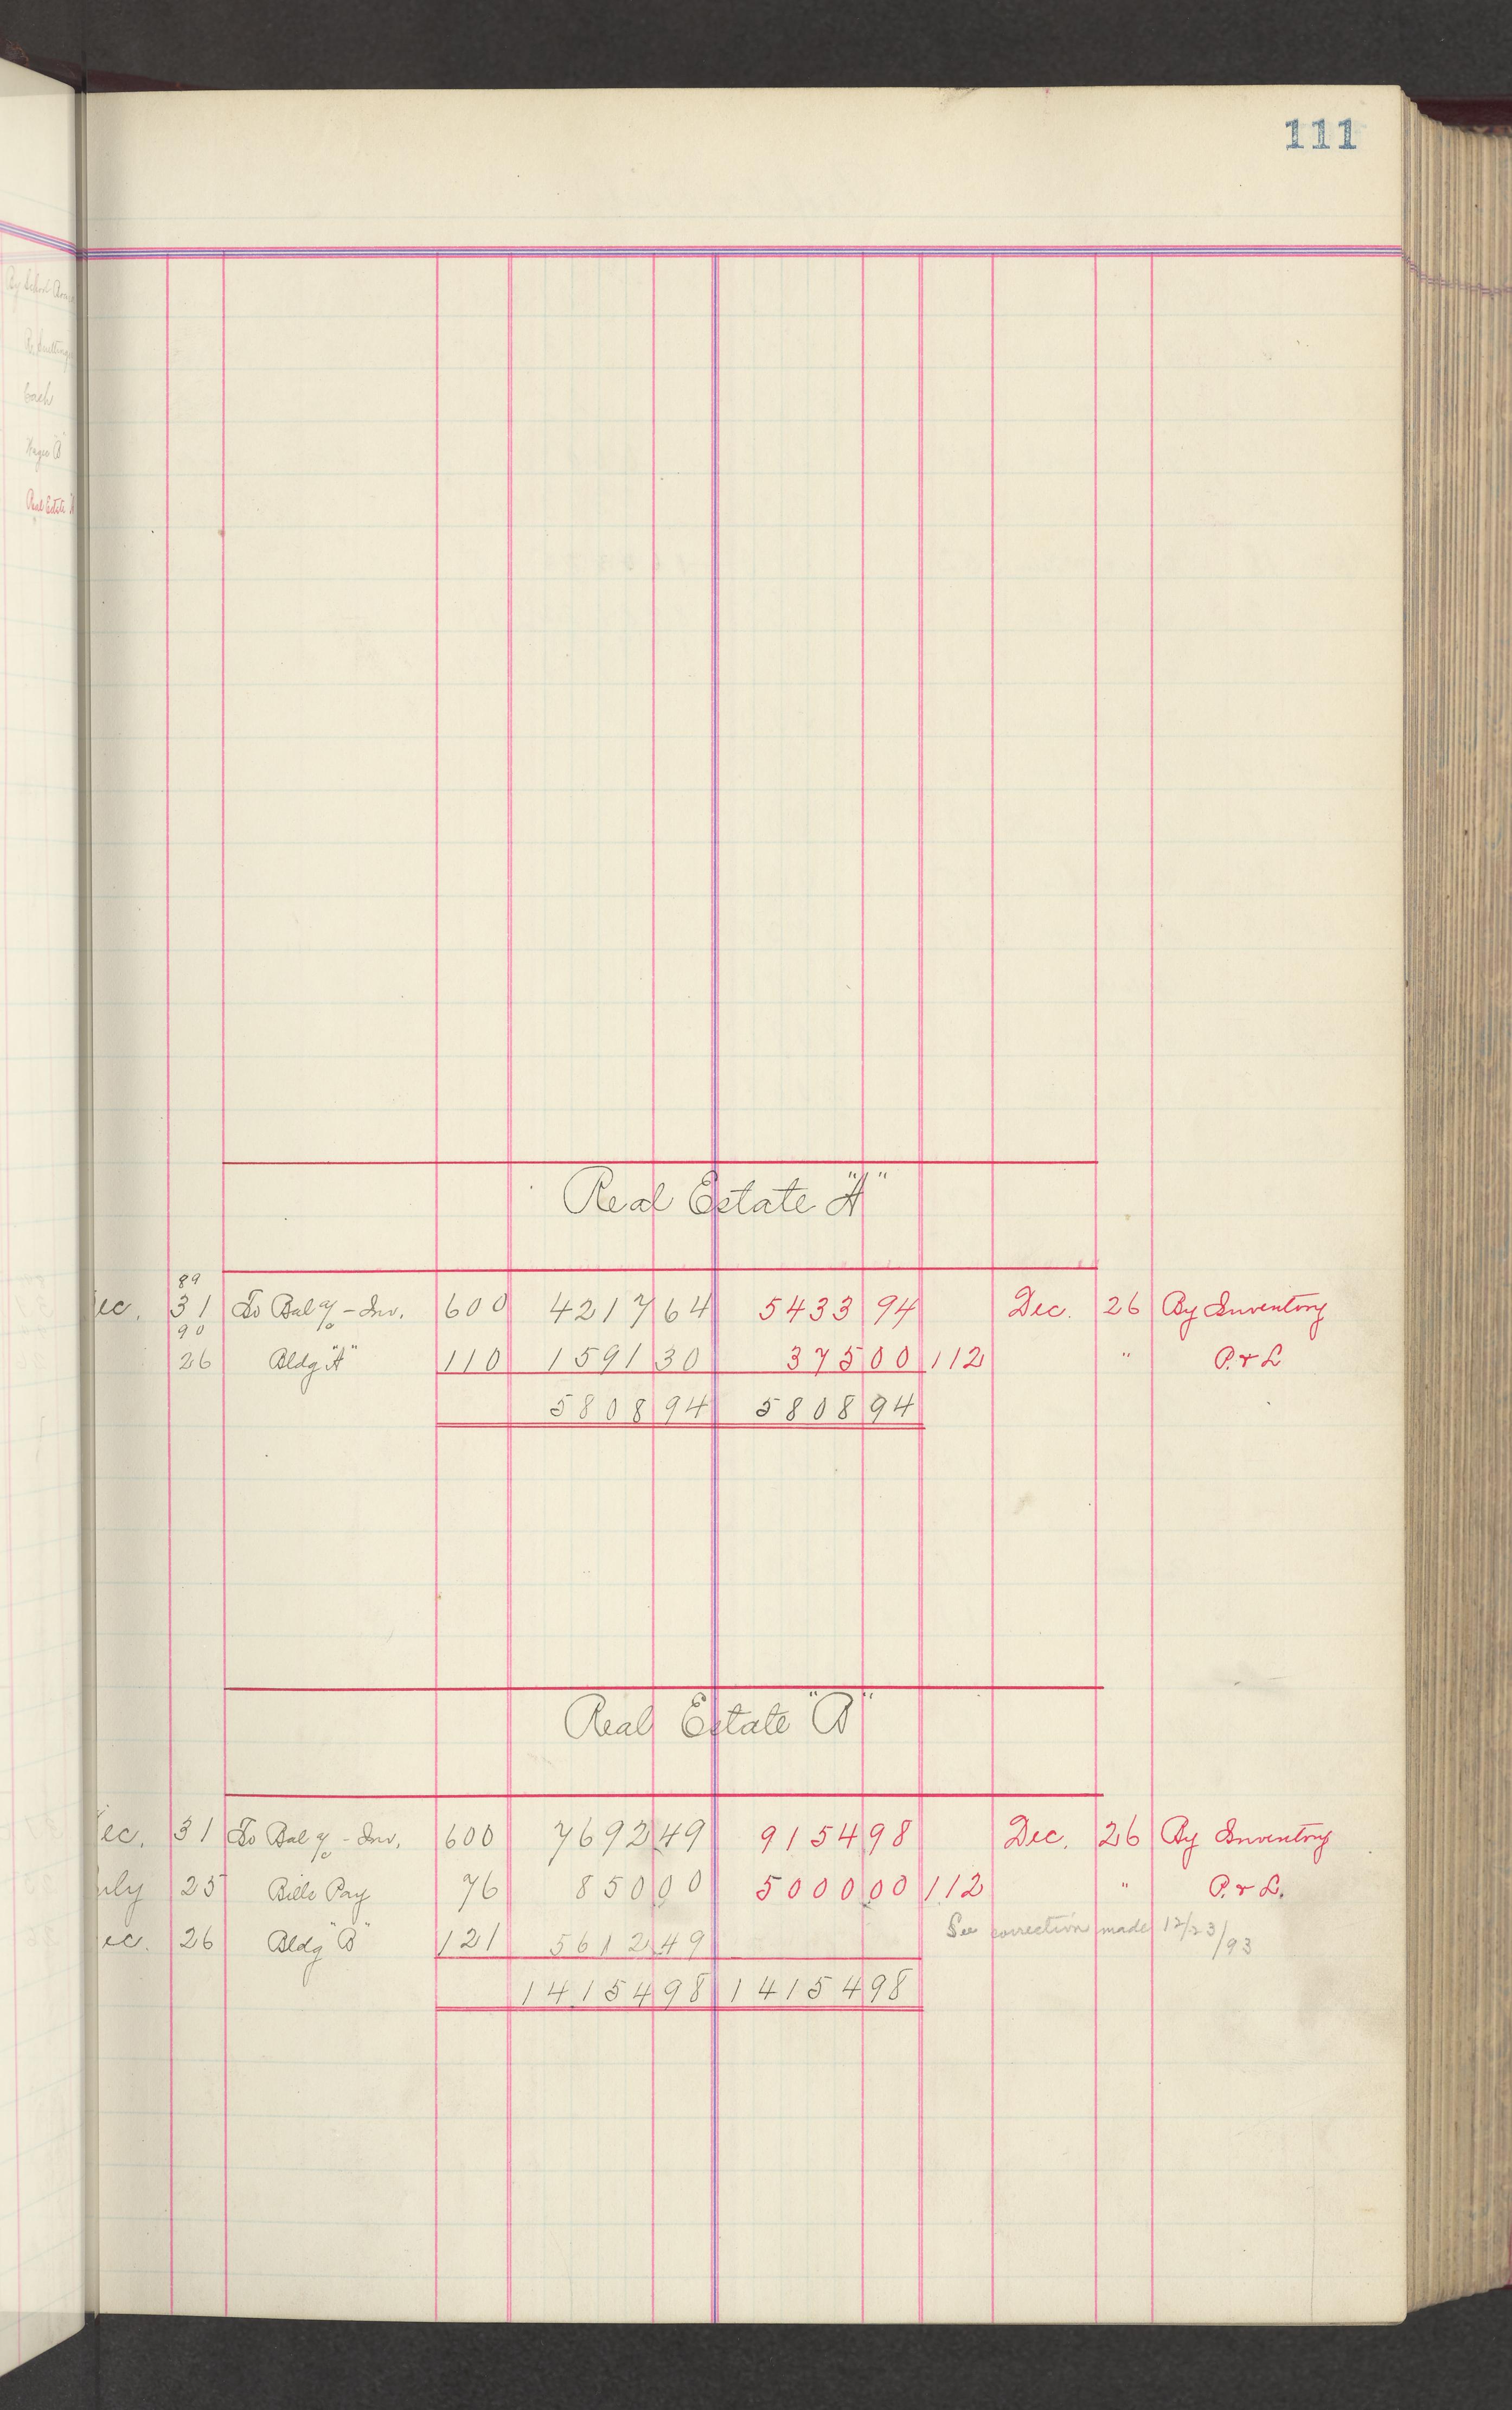 111
Cash
Wages "B"
Real Estate "A"
Real Estate "A"
89
ec. 31 To Bal a/c - Inv. 600 4217 64 5433 94 Dec. 26 By Inventory
90
26 Bldg "A" 110 1591 30 375 00 112 " P. & L
5808 94 5808 94
Real Estate "B"
ec. 31 To Bal a/c - Inv. 600 7692 49 9154 98 Dec. 26 By Inventory
uly 25 Bills Pay 76 850 00 5000 00 112 " P. & L.
ec. 26 Bldg "B" 121 5612 49 See correction made 12/23/93
14154 98 14154 98